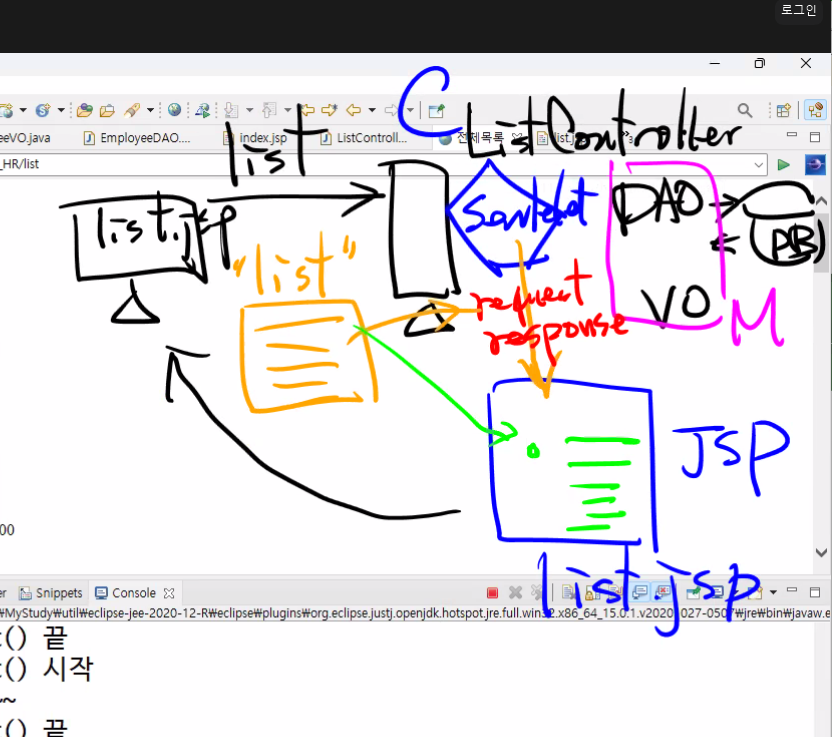 로그인
eeVO.java
EmployeeDAO....
index.jsp
ListControll...
전체목록
_HR/list
C
ListController
list
list.jsp
Servlet
DAO
DB
VO
M
"list"
request
response
JSP
list.jsp
00
Snippets
Console
₩MyStudy₩util₩eclipse-jee-2020-12-R₩eclipse₩plugins₩org.eclipse.justj.openjdk.hotspot.jre.full.win32.x86_64_15.0.1.v20201027-0507₩jre₩bin₩javaw.e
t() 끝
t() 시작
~~
t() 끝